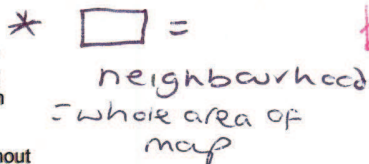 * =
neighbourhood
= whole area of
map
out